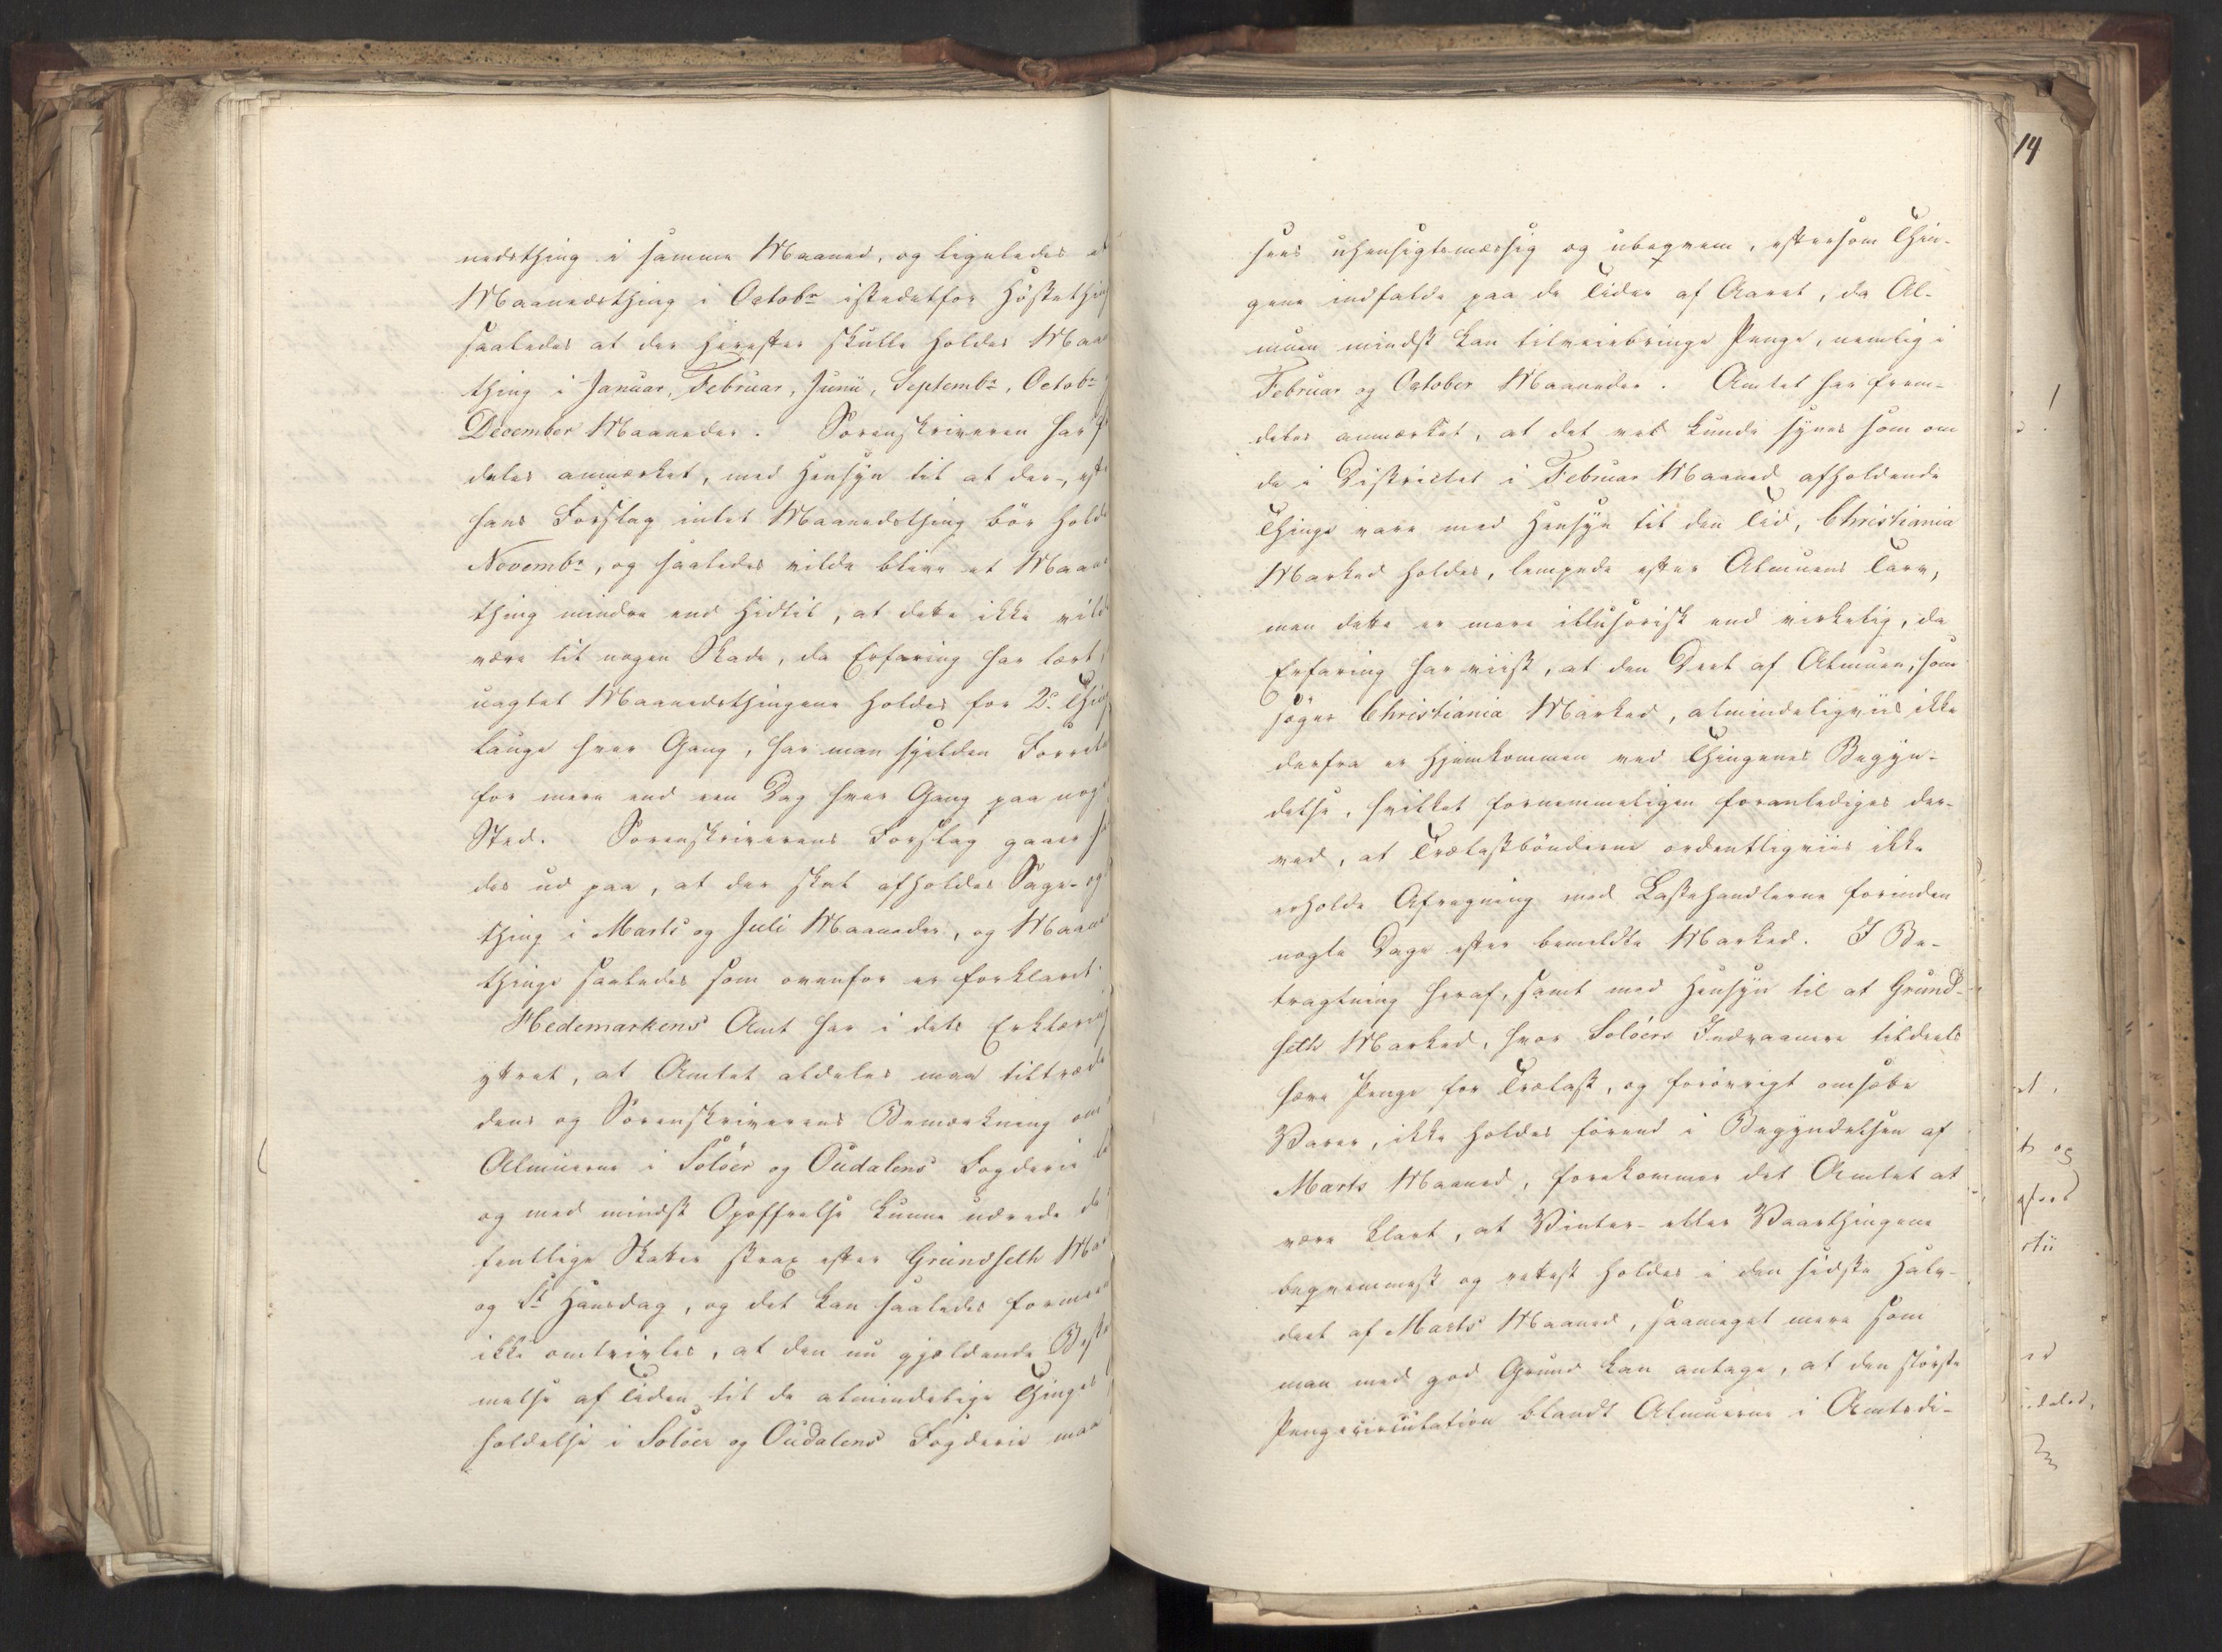 nedsthing i samme Maaned, og ligeledes et
Maanedsthing i Octobr istedetfor Høstething
saaledes at der herefter skulle holdes Maa
thing i Januar, Februar, Junii, Septembr, Octobr
December Maaneder. Sorenskriveren har
deles anmærket, med Hensyn til at der, eft
hans Forslag intet Maanedsthing bør holde
Novembr, og saaledes vilde blive et Maan
thing mindre end hidtil, at dette ikke vild
være til nogen Skade, da Erfaring har lært,
uagtet Maanedsthingene holdes for 2de Thing
lauge hver Gang, har man sjelden Forret
for mere end een Dag hver Gang paa noge
Sted. Sorenskriverens Forslag gaaer
des ud paa, at der skal afholdes Sage- og
thing i Marts og Juli Maaneder, og Maane
thinge saaledes som ovenfor er forklaret.
Hedemarkens Amt har i dets Erklæring
yttret, at Amtet aldeles maa tiltræde
dens og Sorenskriverens Bemærkning om
Almuerne i Soløer og Oudalens Fogderie
og med mindst Opoffrelse kunne udrede de
fentlige Skatter strax efter Grundseth Ma
og St Hansdag, og det kan saaledes formeen
ikke omtvivles, at den nu gjældende Best
melse af Tiden til de almindelige Thinges
holdelse i Soløer og Oudalens Fogderie maa
14
sees uhensigtsmæssig og ubeqvem, eftersom Thin-
gene indfalde paa de Tider af Aaret, da Al-
muen mindst kan tilveiebringe Penge, nemlig i
Februar og October Maaneder. Amtet har frem-
deles anmærket, at det vel kunde synes som om
de i Districtet i Februar Maaned afholdende
Thinge vare med Hensyn til den Tid, Christiania
Marked holdes, lempede efter Almuens Tarv,
men dette er mere illusorisk end virkelig, da
Erfaring har viist, at den Deel af Almuen, som
søger Christiania Marked, almindeligviis ikke
derfra er hjemkommen ved Thingenes Begyn-
delse, hvilket fornemmeligen foranlediges der-
ved, at Trælastbønderne ordentligviis ikke
erholde Afregning med Lastehandlerne forinden
nogle Dage efter bemeldte Marked. I Be-
tragtning heraf, samt med Hensyn til at Grund-
seth Marked, hvor Soløers Indvaanere tildeels
hæve Penge for Trælast, og forøvrigt omsætte
Varer, ikke holdes førend i Begyndelsen af
Marts Maaned, forekommer det Amtet at
være klart, at Vinter- eller Vaarthingene
beqvemmest og rettest holdes i den sidste Halv-
deel af Marts Maaned, saameget mere som
man med god Grund kan antage, at den største
Pengecirculation blandt Almuerne i Amtsdi-